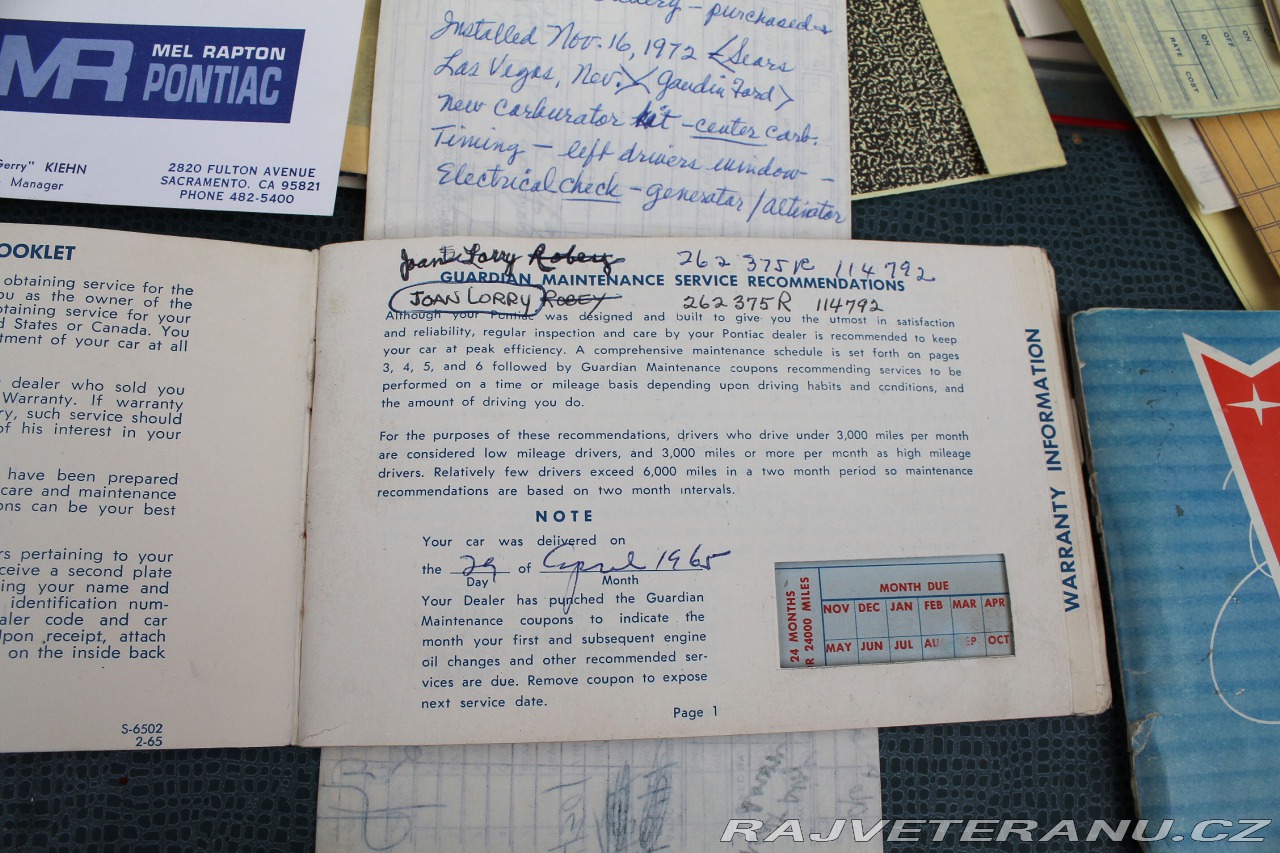 MR MEL RAPTON
PONTIAC
Gerry" KIEHN
Manager
2820 FULTON AVENUE
SACRAMENTO, CA 95821
PHONE 482-5400
purchased &
Installed Nov. 16, 1972 <Sears
Las Vegas, Nev.> <Gaudin Ford>
New carburator kit - center carb.
Timing - left drivers window -
Electrical check - generator/altinator
RATE
ON
OFF
ON
COST
OOKLET
obtaining service for the
ou as the owner of the
otaining service for your
d States or Canada. You
tment of your car at all
dealer who sold you
Warranty. If warranty
ry, such service should
of his interest in your
have been prepared
care and maintenance
ons can be your best
rs pertaining to your
ceive a second plate
ing your name and
identification num-
aler code and car
Upon receipt, attach
on the inside back
S-6502
2-65
Joan Lorry Robey 262 375R 114792
GUARDIAN MAINTENANCE SERVICE RECOMMENDATIONS
JOAN LORRY ROBEY 262375R 114792
Although your Pontiac was designed and built to give you the utmost in satisfaction
and reliability, regular inspection and care by your Pontiac dealer is recommended to keep
your car at peak efficiency. A comprehensive maintenance schedule is set forth on pages
3, 4, 5, and 6 followed by Guardian Maintenance coupons recommending services to be
performed on a time or mileage basis depending upon driving habits and conditions, and
the amount of driving you do.
For the purposes of these recommendations, drivers who drive under 3,000 miles per month
are considered low mileage drivers, and 3,000 miles or more per month as high mileage
drivers. Relatively few drivers exceed 6,000 miles in a two month period so maintenance
recommendations are based on two month intervals.
NOTE
Your car was delivered on
the 29 of April 1965
Day Month
Your Dealer has punched the Guardian
Maintenance coupons to indicate the
month your first and subsequent engine
oil changes and other recommended ser-
vices are due. Remove coupon to expose
next service date.
Page 1
24 MONTHS
OR 24000 MILES
MONTH DUE
NOV DEC JAN FEB MAR APR
MAY JUN JUL AU SEP OCT
WARRANTY INFORMATION
RAJVETERANU.CZ